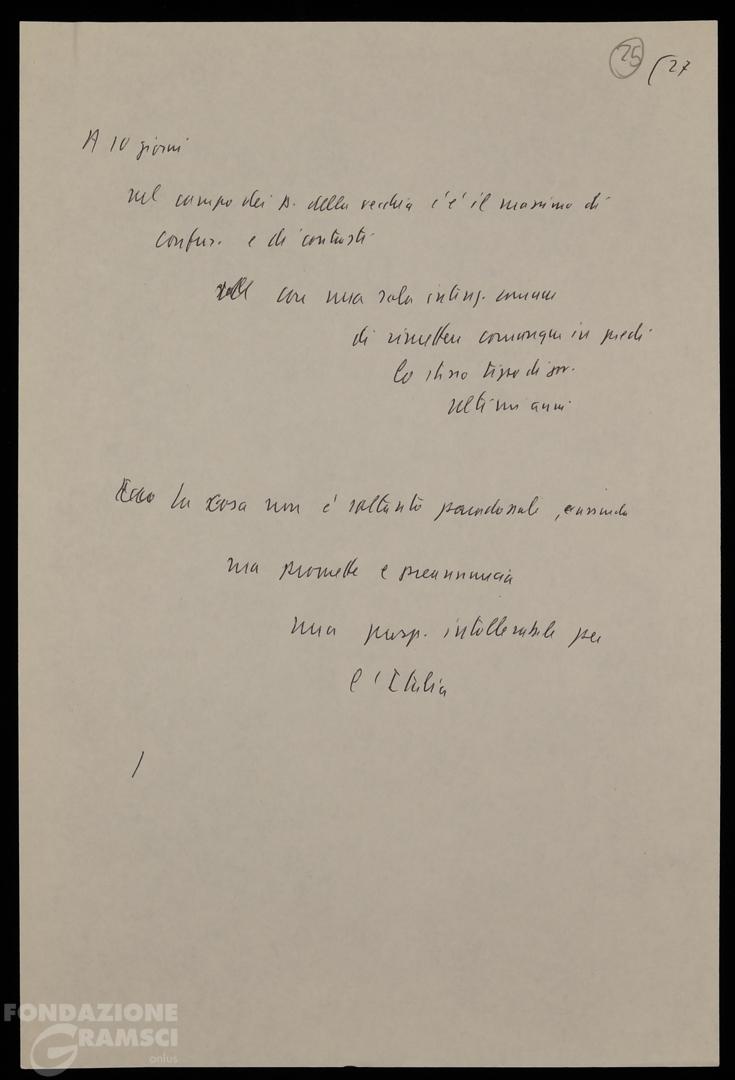 25 (27
A 10 giorni
nel campo dei p. della vecchia c'è il massimo di
confus. e di contrasti
con una sola intenz. comune
di rimettere comunque in piedi
lo stesso tipo di gov.
ultimi anni
La cosa non è soltanto paradossale,
ma promette e preannuncia
una prosp. intollerabile per
l'Italia
/
FONDAZIONE
GRAMSCI
onlus